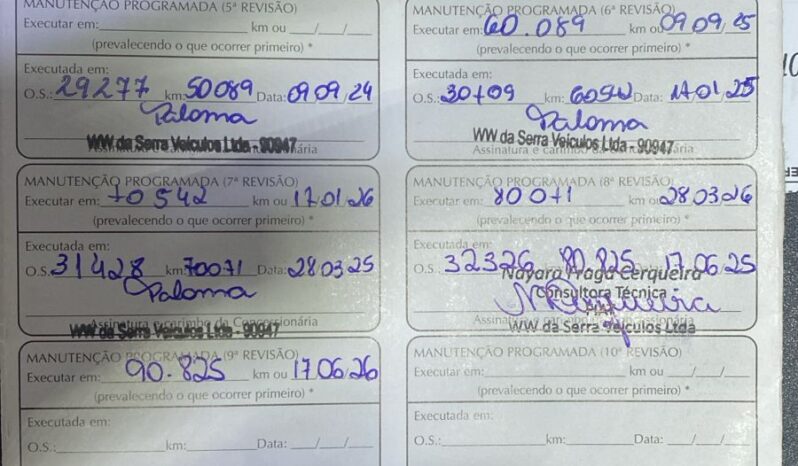 MANUTENÇÃO PROGRAMADA (5ª REVISÃO)
Executar em: km ou / /
(prevalecendo o que ocorrer primeiro) *
Executada em:
O.S.: 29277 km: 50089 Data: 09 09 24
Paloma
WW da Serra Veículos Ltda - 90947
MANUTENÇÃO PROGRAMADA (6ª REVISÃO)
Executar em: 60.089 km ou 09 09 25
(prevalecendo o que ocorrer primeiro) *
Executada em:
O.S.: 30709 km: 60542 Data: 17 01 25
Paloma
WW da Serra Veículos Ltda - 90947
MANUTENÇÃO PROGRAMADA (7ª REVISÃO)
Executar em: 70542 km ou 17 01 26
(prevalecendo o que ocorrer primeiro) *
Executada em:
O.S. 31428 km: 70071 Data: 28 03 25
Paloma
Assinatura e carimbo da Concessionária
WW da Serra Veículos Ltda - 90947
MANUTENÇÃO PROGRAMADA (8ª REVISÃO)
Executar em: 80071 km ou 28 03 26
(prevalecendo o que ocorrer primeiro) *
Executada em:
O.S.: 32326 80.825 17 06 25
Nayara Braga Cerqueira
Consultora Técnica
WW da Serra Veículos Ltda
MANUTENÇÃO PROGRAMADA (9ª REVISÃO)
Executar em: 90.825 km ou 17 06 26
(prevalecendo o que ocorrer primeiro) *
Executada em:
O.S.: km: Data: / /
MANUTENÇÃO PROGRAMADA (10ª REVISÃO)
Executar em: km ou / /
(prevalecendo o que ocorrer primeiro) *
Executada em:
O.S.: km: Data: / /